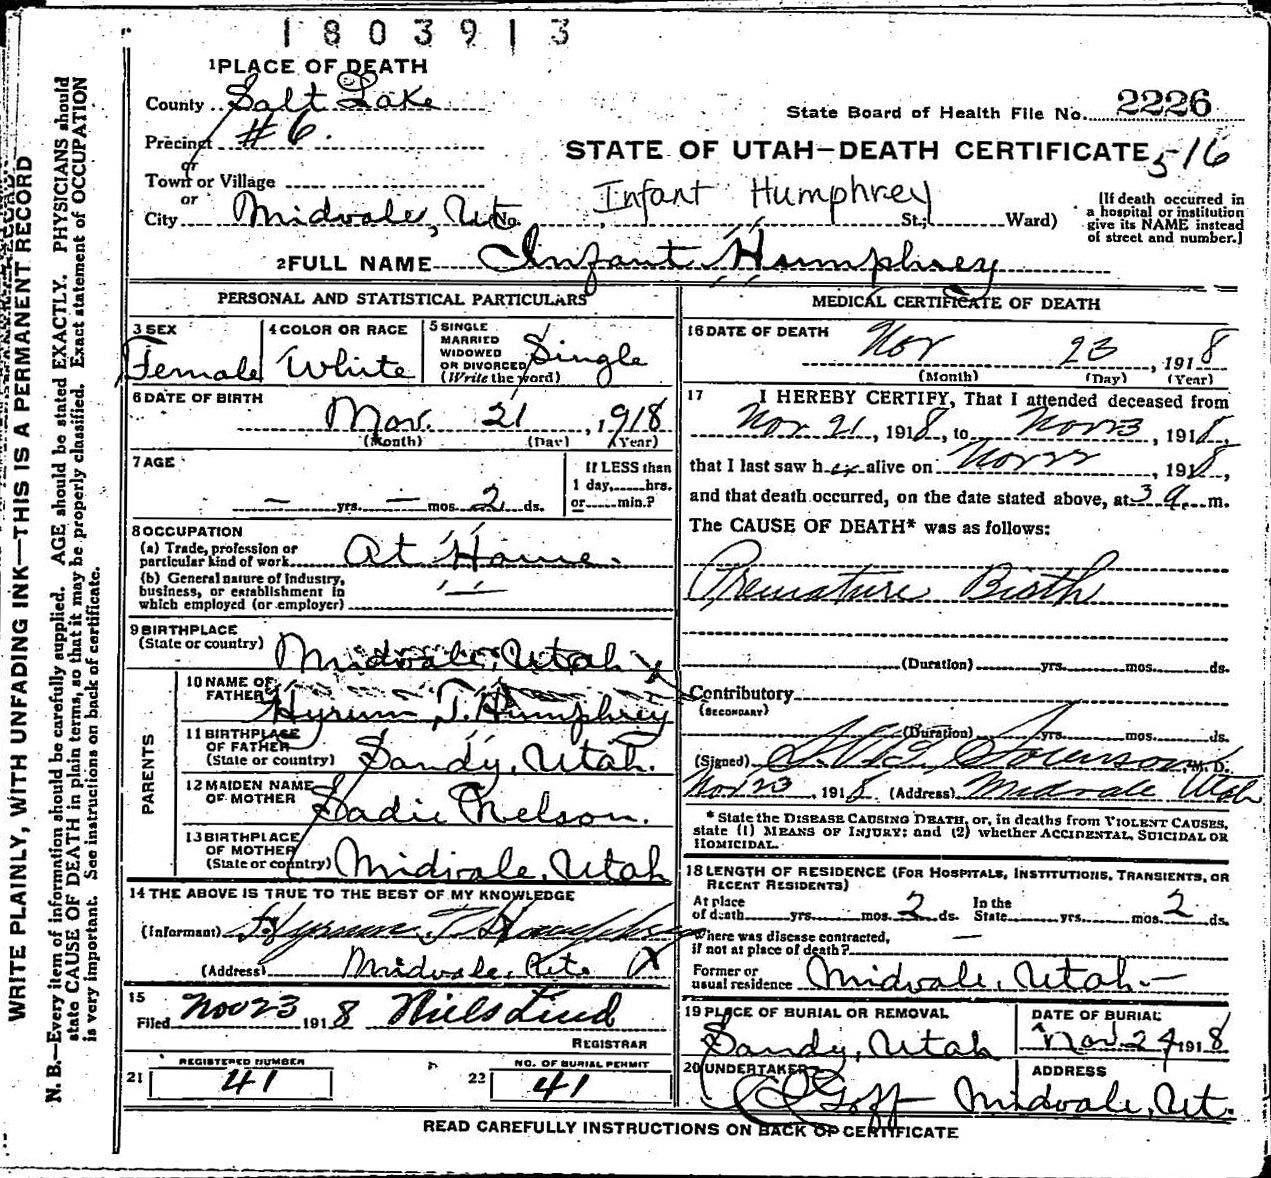 1803913
1 PLACE OF DEATH
County Salt Lake
State Board of Health File No. 2226
Precinct #6.
STATE OF UTAH—DEATH CERTIFICATE 516
or
Town or Village
Infant Humphrey
or
City Midvale, Ut. No. St., Ward)
[If death occurred in
a hospital or institution
give its NAME instead
of street and number.]
2 FULL NAME Infant Humphrey
PERSONAL AND STATISTICAL PARTICULARS
3 SEX
Female
4 COLOR OR RACE
White
5 SINGLE
MARRIED
WIDOWED
OR DIVORCED
(Write the word)
Single
6 DATE OF BIRTH
Nov. 21, 1918
(Month) (Day) (Year)
7 AGE
— yrs. — mos. 2 ds.
If LESS than
1 day, hrs.
or min.?
8 OCCUPATION
(a) Trade, profession or
particular kind of work At Home.
(b) General nature of industry,
business, or establishment in
which employed (or employer)
9 BIRTHPLACE
(State or country) Midvale, Utah
PARENTS
10 NAME OF
FATHER Hyrum T. Humphrey
11 BIRTHPLACE
OF FATHER
(State or country) Sandy, Utah.
12 MAIDEN NAME
OF MOTHER Sadie Nelson.
13 BIRTHPLACE
OF MOTHER
(State or country) Midvale, Utah
14 THE ABOVE IS TRUE TO THE BEST OF MY KNOWLEDGE
(Informant) Hyrum T Humphrey
(Address) Midvale, Ut. X
15
Filed Nov 23 1918 Niels Lind
REGISTRAR
REGISTERED NUMBER
21 41
NO. OF BURIAL PERMIT
22 41
MEDICAL CERTIFICATE OF DEATH
16 DATE OF DEATH
Nov 23, 1918
(Month) (Day) (Year)
17 I HEREBY CERTIFY, That I attended deceased from
Nov 21, 1918, to Nov 23, 1918,
that I last saw her alive on Nov 22, 1918,
and that death occurred, on the date stated above, at 3 a. m.
The CAUSE OF DEATH* was as follows:
Premature Birth
(Duration) yrs. mos. ds.
Contributory
(SECONDARY)
(Duration) yrs. mos. ds.
(Signed) M. D.
Nov 23, 1918 (Address) Midvale Utah
* State the DISEASE CAUSING DEATH, or, in deaths from VIOLENT CAUSES,
state (1) MEANS OF INJURY; and (2) whether ACCIDENTAL, SUICIDAL OR
HOMICIDAL.
18 LENGTH OF RESIDENCE (FOR HOSPITALS, INSTITUTIONS, TRANSIENTS, OR
RECENT RESIDENTS)
At place
of death yrs. mos. 2 ds.
In the
State yrs. mos. 2 ds.
Where was disease contracted,
if not at place of death? —
Former or
usual residence Midvale, Utah—
19 PLACE OF BURIAL OR REMOVAL
Sandy, Utah
DATE OF BURIAL
Nov. 24 1918
20 UNDERTAKER
Goff
ADDRESS
Midvale, Ut.
READ CAREFULLY INSTRUCTIONS ON BACK OF CERTIFICATE
WRITE PLAINLY, WITH UNFADING INK—THIS IS A PERMANENT RECORD
N. B.—Every item of information should be carefully supplied. AGE should be stated EXACTLY. PHYSICIANS should
state CAUSE OF DEATH in plain terms, so that it may be properly classified. Exact statement of OCCUPATION
is very important. See instructions on back of certificate.